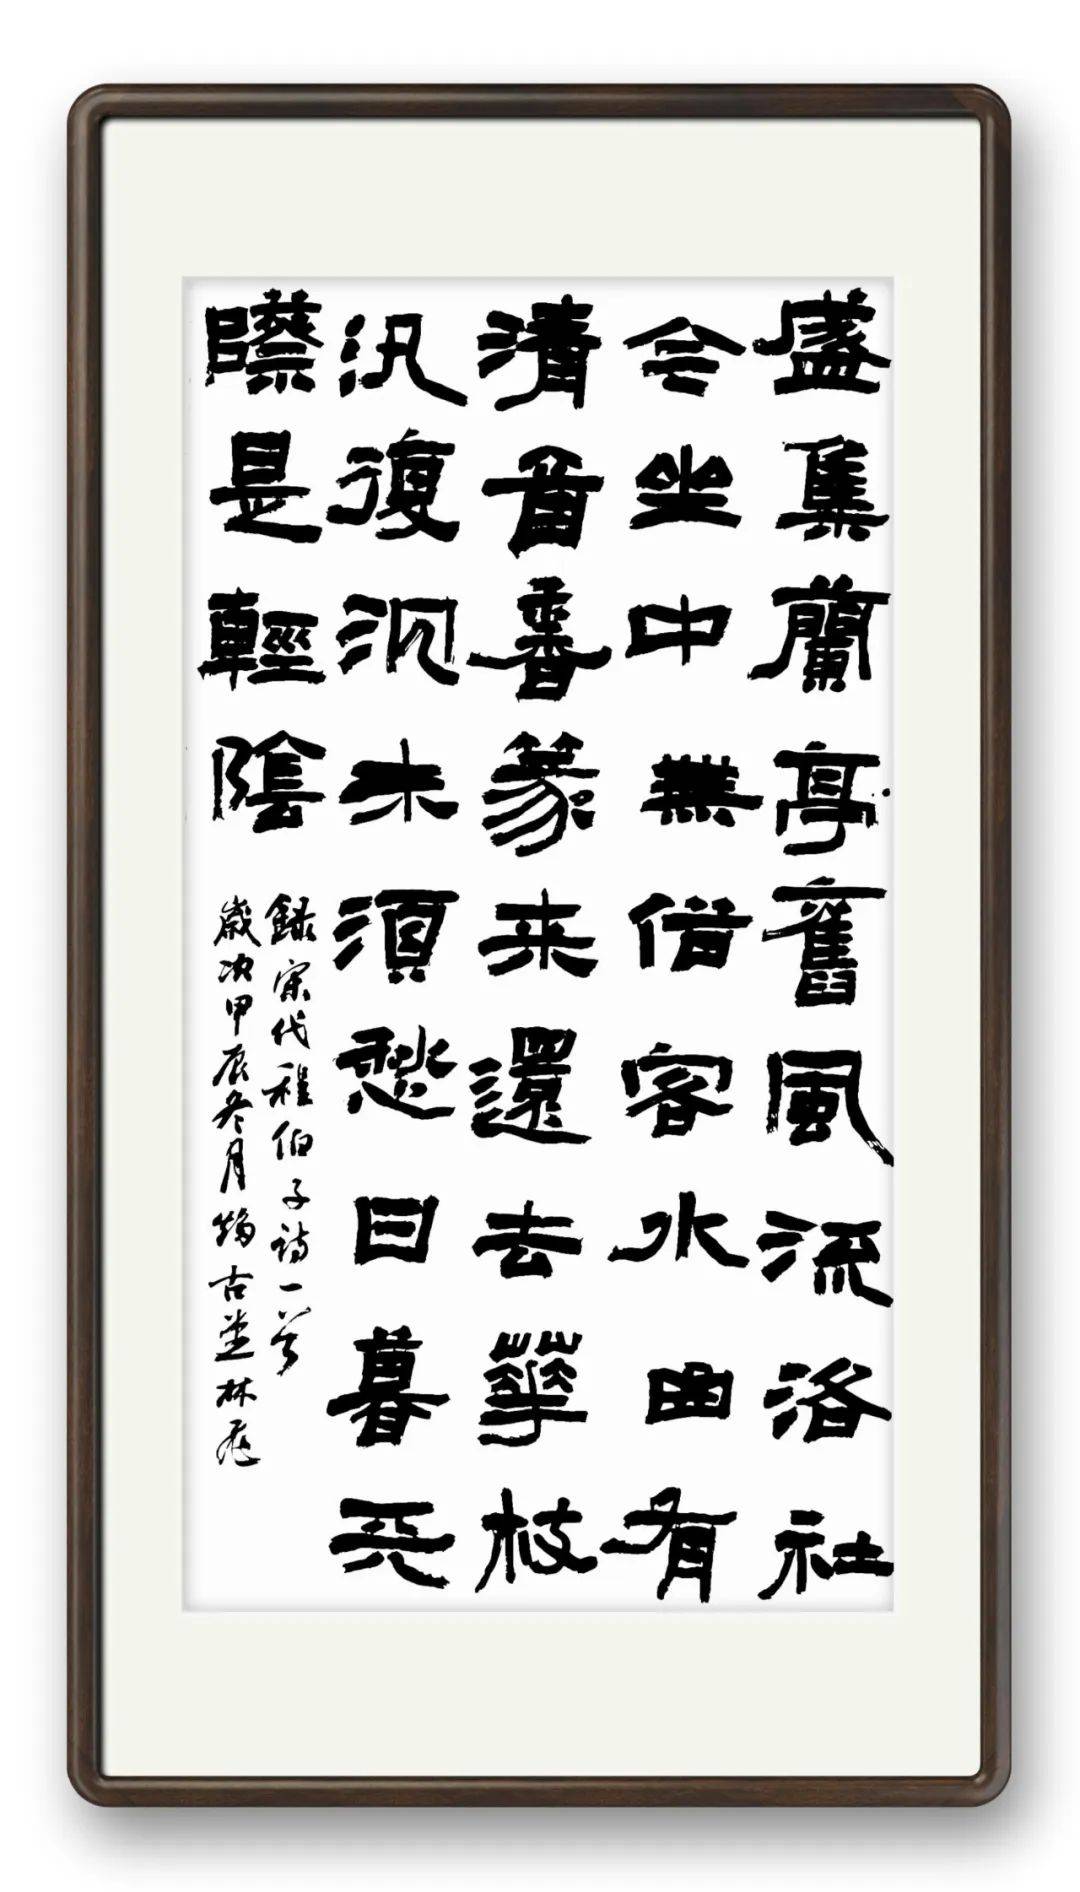 盛集蘭亭舊風流洛社
今坐中無俗客水曲有
清音香篆来還去華枝
汎復沉未須愁日暮天
際是輕陰
録宋代程伯子诗一首
歲次甲辰冬月古堂林